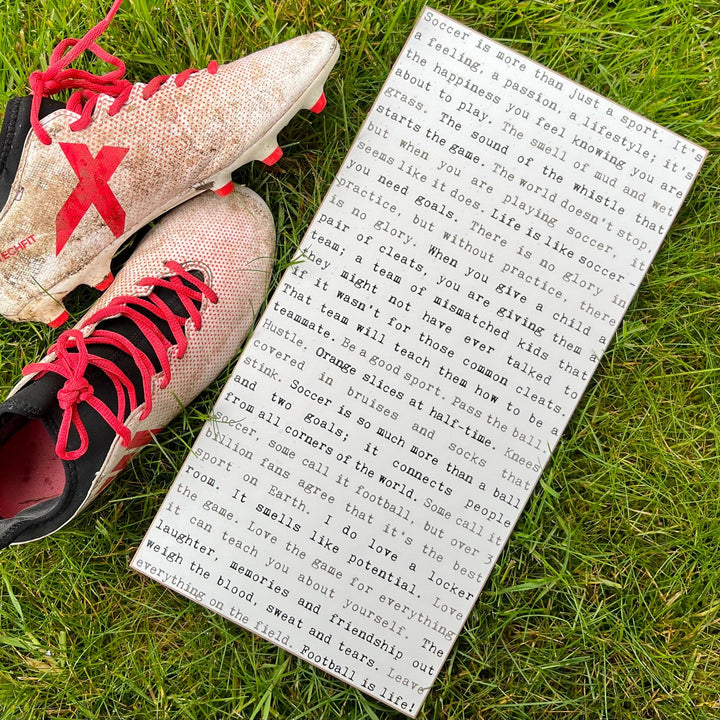 Soccer is more than just a sport. It's
a feeling, a passion, a lifestyle; it's
the happiness you feel knowing you are
about to play. The smell of mud and wet
grass. The sound of the whistle that
starts the game. The world doesn't stop
but when you are playing soccer, it
seems like it does. Life is like soccer
you need goals. There is no glory in
practice, but without practice, there
is no glory. When you give a child a
pair of cleats, you are giving them a
team, a team of mismatched kids that
they might not have ever talked to
if it wasn't for those common cleats.
That team will teach them how to be a
teammate. Be a good sport. Pass the ball.
Hustle. Orange slices at half-time. Knees
covered in bruises and socks that
stink. Soccer is so much more than a ball
and two goals; it connects people
from all corners of the world. Some call it
soccer, some call it football, but over 3
billion fans agree that it's the best
sport on Earth. I do love a locker
room. It smells like potential. Love
the game. Love the game for everything
it can teach you about yourself. The
laughter, memories and friendship out
weigh the blood, sweat and tears. Leave
everything on the field. Football is life!
X
TECHFIT